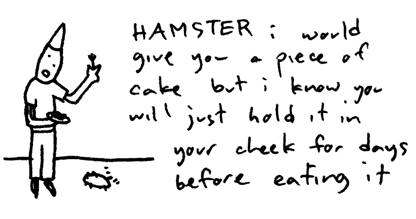 HAMSTER i would
give you a piece of
cake but i know you
will just hold it in
your cheek for days
before eating it